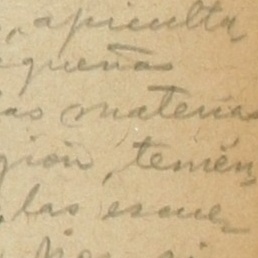 , apicultu
queñas
as materias
gión, temén
las escue-